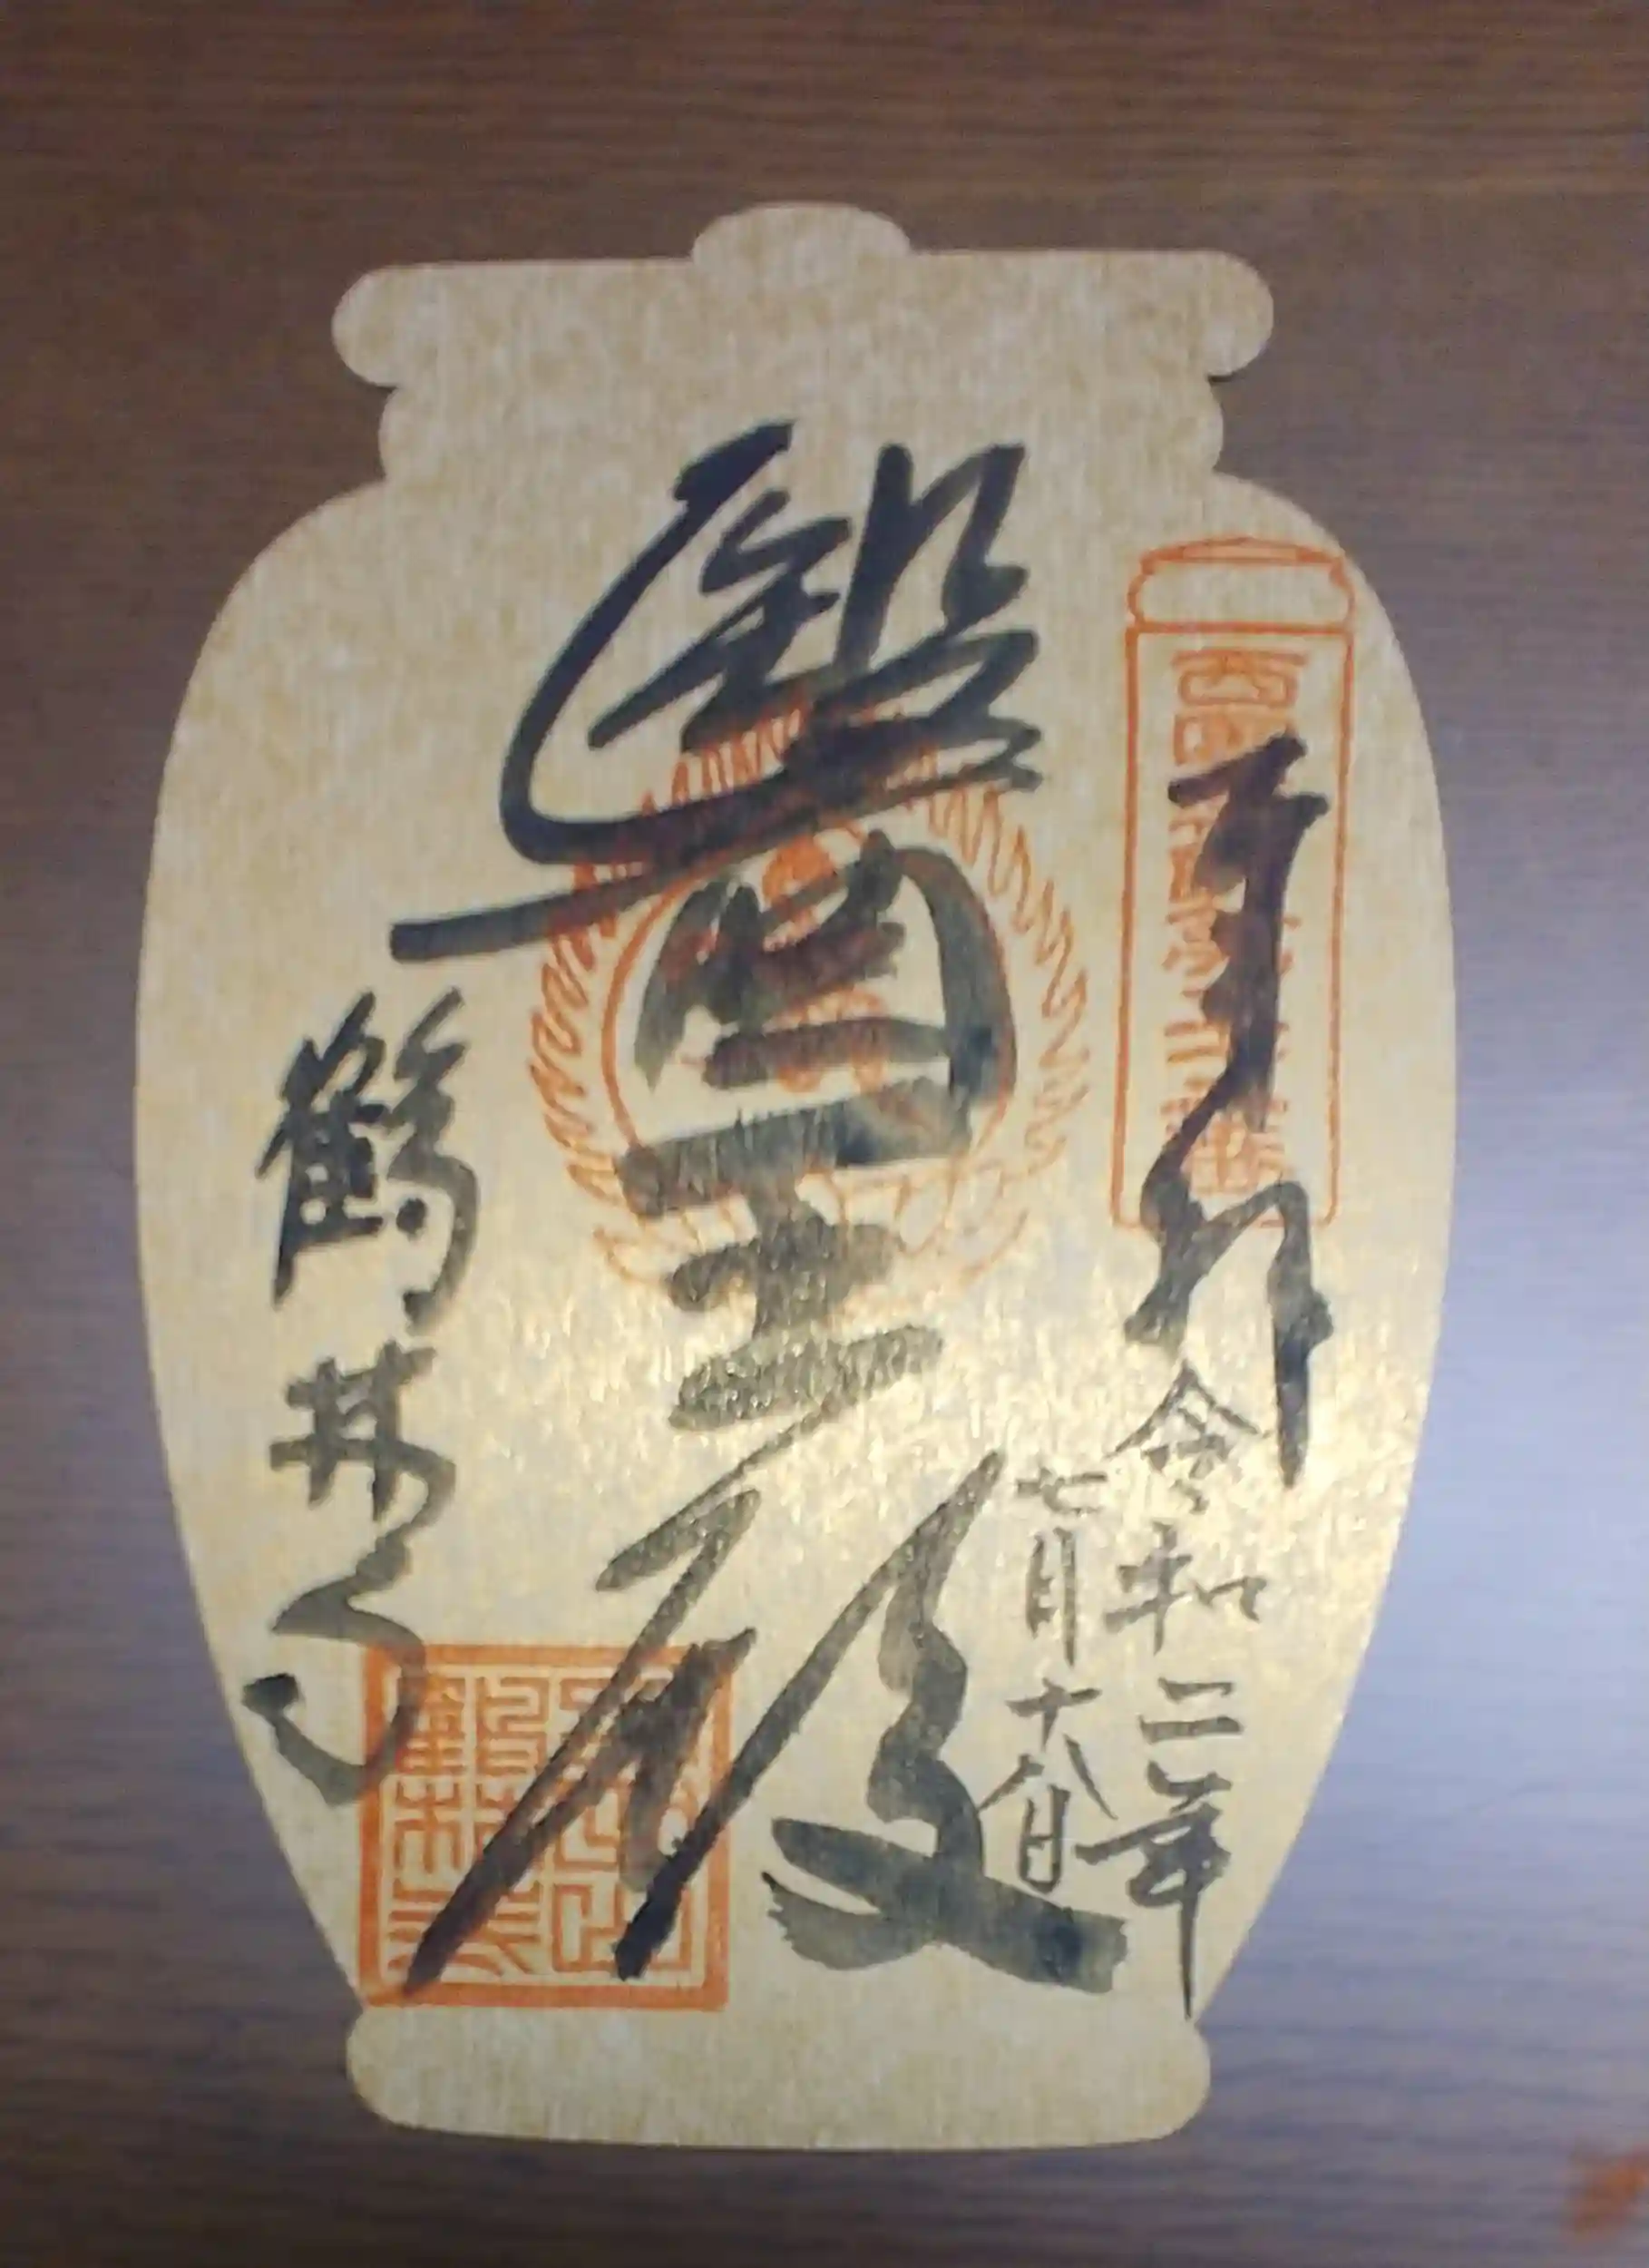 奉拝
令和二年
七月十八日
醫王殿
鶴林寺